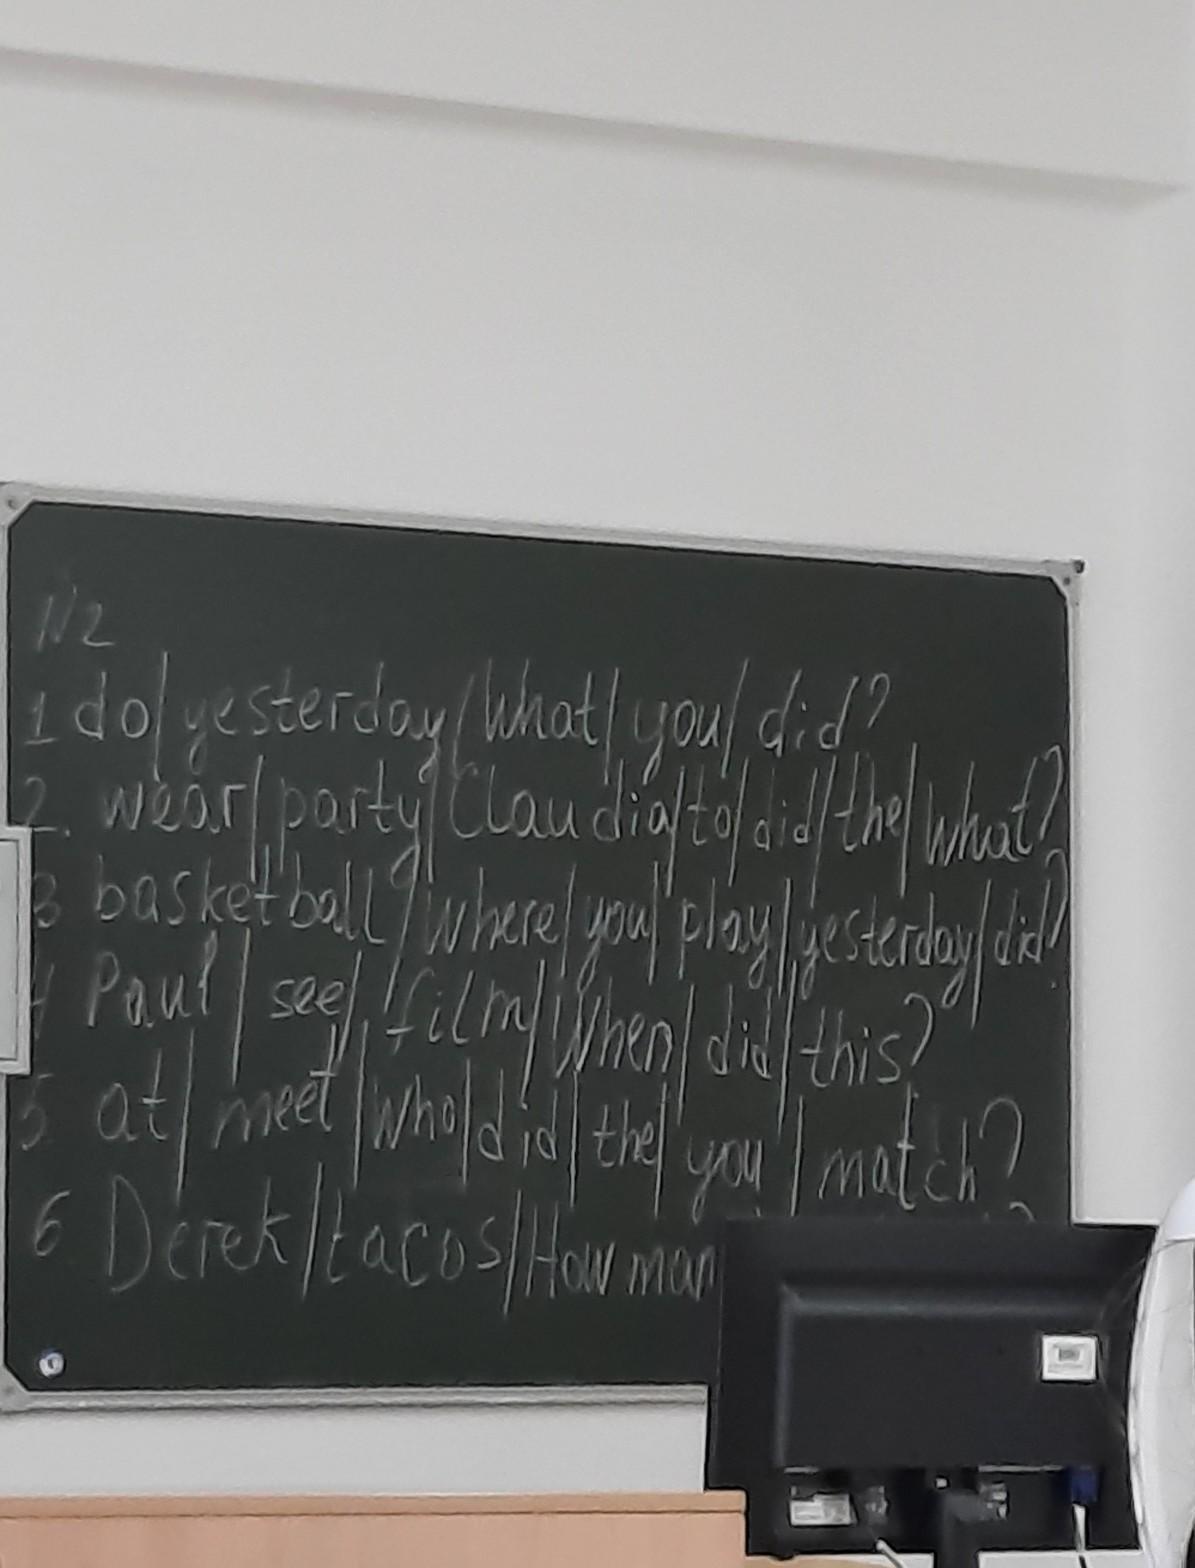 №2
1 do/yesterday/What/you/did?
2. wear/party/Claudia/to/did/the/What?
3 basketball/where/you/play/yesterday/did?
4 Paul/see/film/When/did/this?
5 at/meet/who/did/the/you/match?
6 Derek/tacos/How